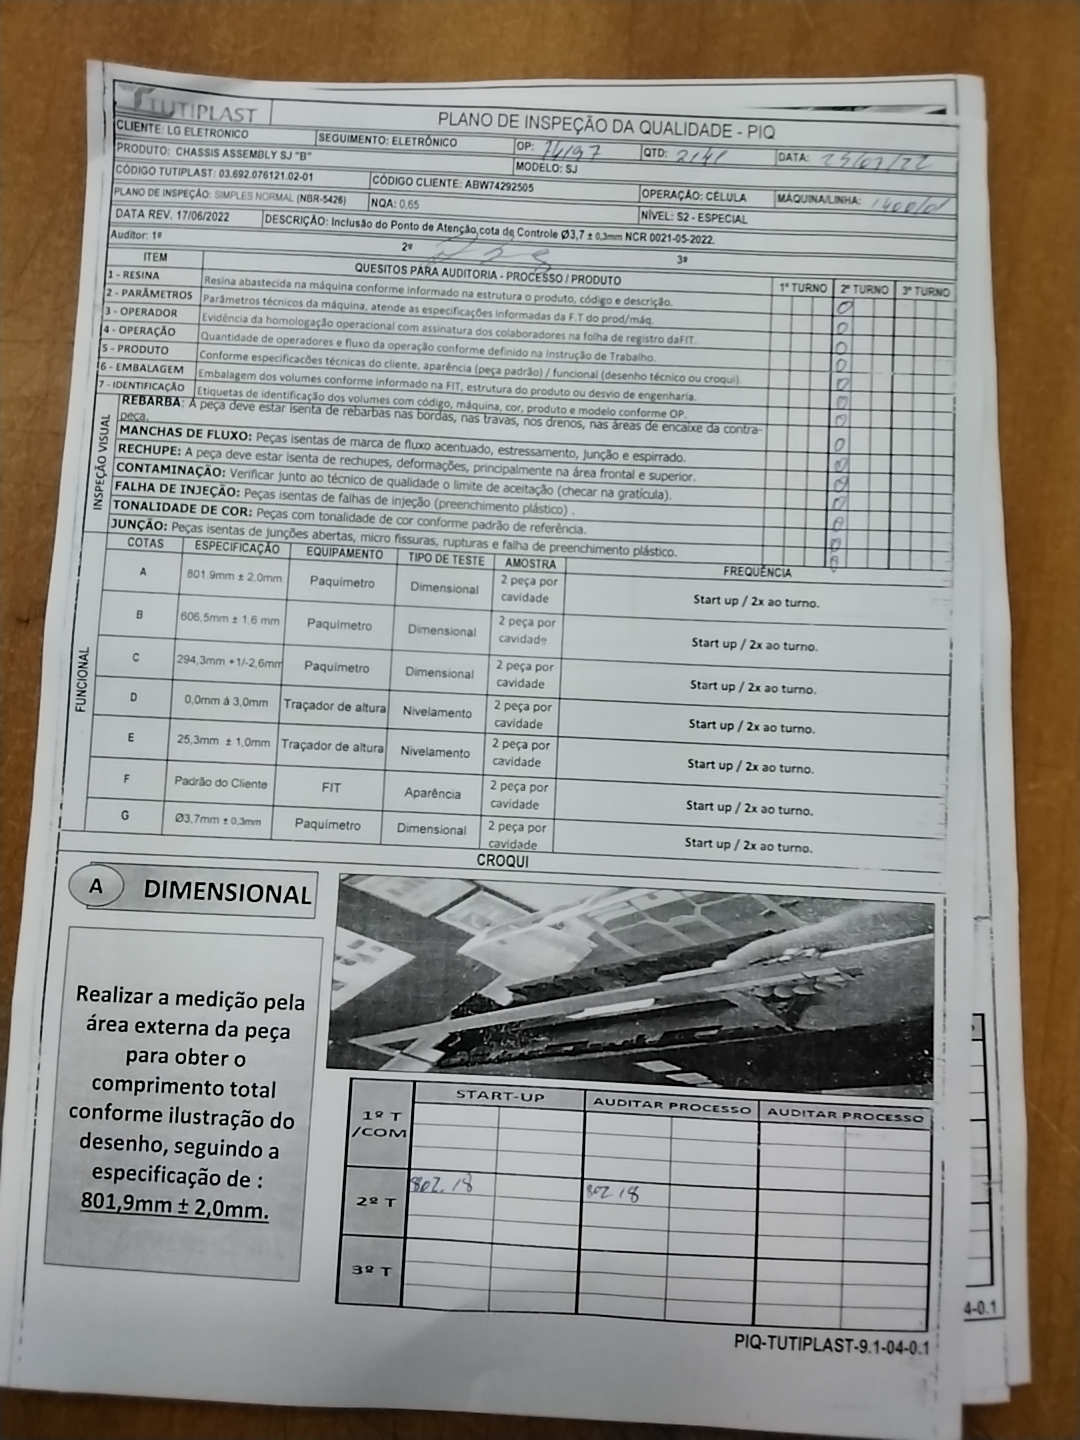 TUTIPLAST
PLANO DE INSPEÇÃO DA QUALIDADE - PIQ
CLIENTE: LG ELETRONICO
SEGUIMENTO: ELETRÔNICO
OP: 74197
QTD:
DATA:
PRODUTO: CHASSIS ASSEMBLY SJ "B"
MODELO: SJ
CÓDIGO TUTIPLAST: 03.692.076121.02-01
CÓDIGO CLIENTE: ABW74292505
OPERAÇÃO: CÉLULA
MÁQUINA/LINHA:
PLANO DE INSPEÇÃO: SIMPLES NORMAL (NBR-5426)
NQA: 0,65
NÍVEL: S2 - ESPECIAL
DATA REV. 17/06/2022
DESCRIÇÃO: Inclusão do Ponto de Atenção cota de Controle Ø3,7 ± 0,3mm NCR 0021-05-2022.
Auditor: 1º
2º
3º
ITEM
QUESITOS PARA AUDITORIA - PROCESSO / PRODUTO
1º TURNO
2º TURNO
3º TURNO
1 - RESINA
Resina abastecida na máquina conforme informado na estrutura o produto, código e descrição.
2 - PARÂMETROS
Parâmetros técnicos da máquina, atende as especificações informadas da F.T do prod/máq.
3 - OPERADOR
Evidência da homologação operacional com assinatura dos colaboradores na folha de registro daFIT.
4 - OPERAÇÃO
Quantidade de operadores e fluxo da operação conforme definido na Instrução de Trabalho.
5 - PRODUTO
Conforme especificacões técnicas do cliente, aparência (peça padrão) / functional (desenho técnico ou croqui).
6 - EMBALAGEM
Embalagem dos volumes conforme informado na FIT, estrutura do produto ou desvio de engenharia.
7 - IDENTIFICAÇÃO
Etiquetas de identificação dos volumes com código, máquina, cor, produto e modelo conforme OP.
INSPEÇÃO VISUAL
REBARBA: A peça deve estar isenta de rebarbas nas bordas, nas travas, nos drenos, nas áreas de encaixe da contra-
peça.
MANCHAS DE FLUXO: Peças isentas de marca de fluxo acentuado, estressamento, junção e espirrado.
RECHUPE: A peça deve estar isenta de rechupes, deformações, principalmente na área frontal e superior.
CONTAMINAÇÃO: Verificar junto ao técnico de qualidade o limite de aceitação (checar na gratícula).
FALHA DE INJEÇÃO: Peças isentas de falhas de injeção (preenchimento plástico) .
TONALIDADE DE COR: Peças com tonalidade de cor conforme padrão de referência.
JUNÇÃO: Peças isentas de junções abertas, micro fissuras, rupturas e falha de preenchimento plástico.
FUNCIONAL
COTAS ESPECIFICAÇÃO EQUIPAMENTO TIPO DE TESTE AMOSTRA FREQUÊNCIA
A 801.9mm ± 2,0mm Paquímetro Dimensional 2 peça por cavidade Start up / 2x ao turno.
B 606,5mm ± 1,6 mm Paquímetro Dimensional 2 peça por cavidade Start up / 2x ao turno.
C 294,3mm +1/-2,6mm Paquímetro Dimensional 2 peça por cavidade Start up / 2x ao turno.
D 0,0mm á 3,0mm Traçador de altura Nivelamento 2 peça por cavidade Start up / 2x ao turno.
E 25,3mm ± 1,0mm Traçador de altura Nivelamento 2 peça por cavidade Start up / 2x ao turno.
F Padrão do Cliente FIT Aparência 2 peça por cavidade Start up / 2x ao turno.
G Ø3,7mm ± 0,3mm Paquímetro Dimensional 2 peça por cavidade Start up / 2x ao turno.
CROQUI
A DIMENSIONAL
Realizar a medição pela
área externa da peça
para obter o
comprimento total
conforme ilustração do
desenho, seguindo a
especificação de :
801,9mm ± 2,0mm.
START-UP AUDITAR PROCESSO AUDITAR PROCESSO
1º T
/COM
2º T 802.18 802.18
3º T
PIQ-TUTIPLAST-9.1-04-0.1
4-0.1